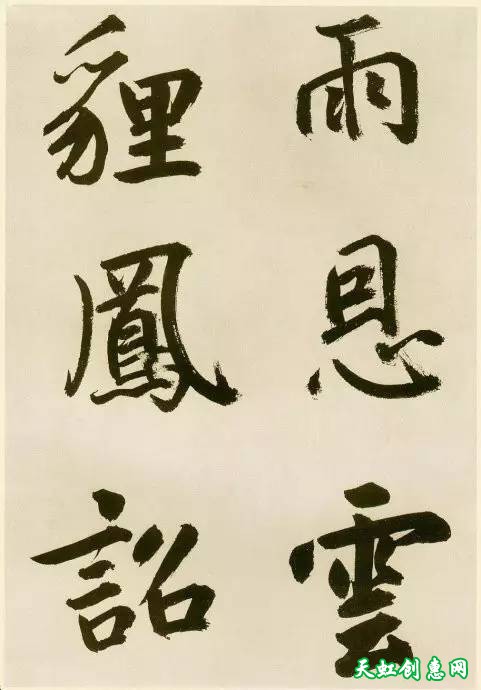 雨恩雲
貍鳳詔
天虹创惠网